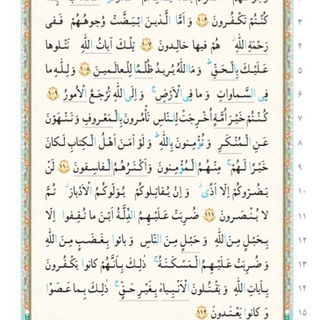 كُنْتُمْ تَكْفُرُونَ ﴿۱۰۶﴾ وَ أَمَّا الَّذینَ ابْیَضَّتْ وُجُوهُهُمْ فَفی
رَحْمَةِ اللّٰهِ هُمْ فیها خالِدُونَ ﴿۱۰۷﴾ تِلْكَ آیاتُ اللّٰهِ نَتْلُوها
عَلَیْكَ بِالْحَقِّ وَ مَا اللّٰهُ یُریدُ ظُلْمًا لِلْعالَمینَ ﴿۱۰۸﴾ وَ لِلّٰهِ ما
فِی السَّماواتِ وَ ما فِی الْأَرْضِ وَ إِلَی اللّٰهِ تُرْجَعُ الْأُمُورُ ﴿۱۰۹﴾
كُنْتُمْ خَیْرَ أُمَّةٍ أُخْرِجَتْ لِلنّاسِ تَأْمُرُونَ بِالْمَعْرُوفِ وَ تَنْهَوْنَ
عَنِ الْمُنْكَرِ وَ تُؤْمِنُونَ بِاللّٰهِ وَ لَوْ آمَنَ أَهْلُ الْكِتابِ لَكانَ
خَیْرًا لَهُمْ مِنْهُمُ الْمُؤْمِنُونَ وَ أَكْثَرُهُمُ الْفاسِقُونَ ﴿۱۱۰﴾ لَنْ
یَضُرُّوكُمْ إِلّا أَذًی وَ إِنْ یُقاتِلُوكُمْ یُوَلُّوكُمُ الْأَدْبارَ ثُمَّ
لا یُنْصَرُونَ ﴿۱۱۱﴾ ضُرِبَتْ عَلَیْهِمُ الذِّلَّةُ أَیْنَ ما ثُقِفُوا إِلّا
بِحَبْلٍ مِنَ اللّٰهِ وَ حَبْلٍ مِنَ النّاسِ وَ باءُو بِغَضَبٍ مِنَ اللّٰهِ
وَ ضُرِبَتْ عَلَیْهِمُ الْمَسْكَنَةُ ذلِكَ بِأَنَّهُمْ كانُوا یَكْفُرُونَ
بِآیاتِ اللّٰهِ وَ یَقْتُلُونَ الْأَنْبِیاءَ بِغَیْرِ حَقٍّ ذلِكَ بِما عَصَوْا
وَ كانُوا یَعْتَدُونَ ﴿۱۱۲﴾